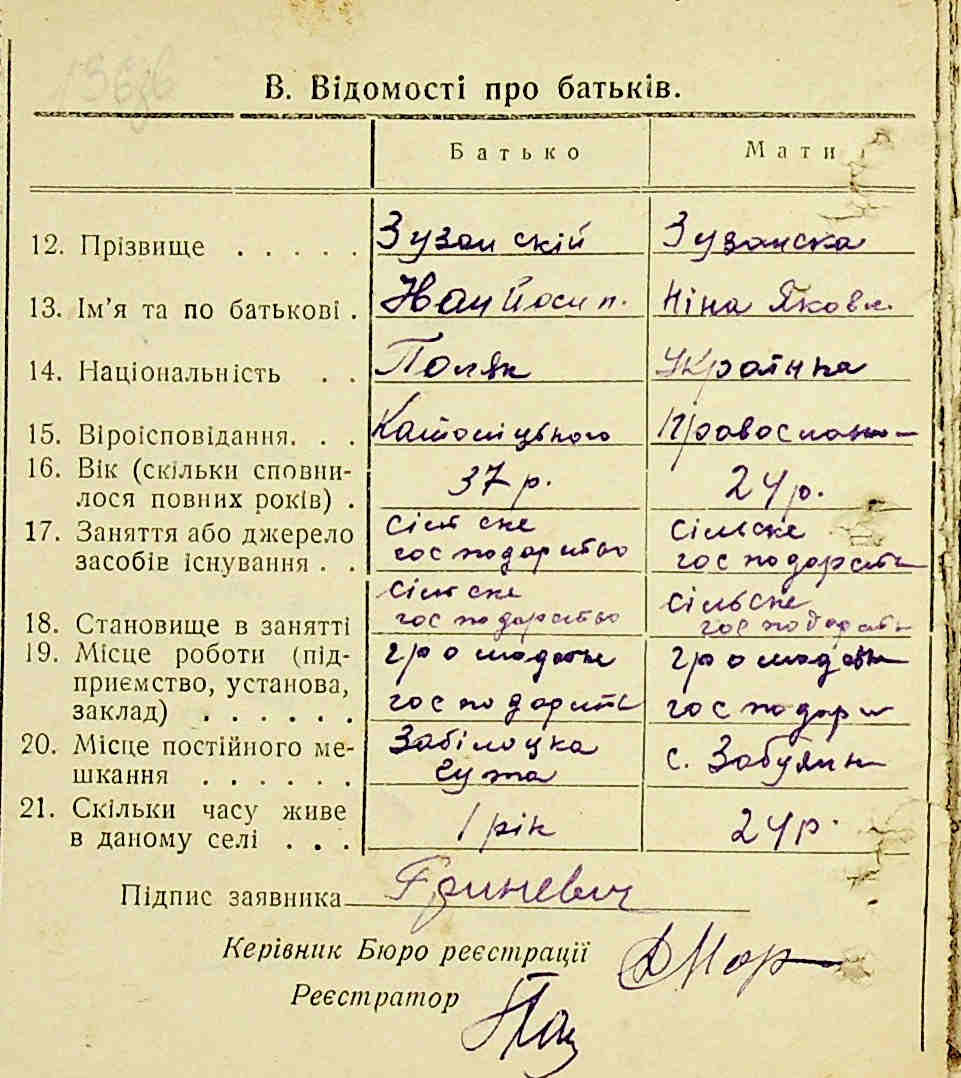 В. Відомості про батьків.
Батько Мати
12. Прізвище . . . . . Зузанскій Зузанска
13. Ім'я та по батькові . Йосип. Ніна Яковл.
14. Національність . . Поляк Українка
15. Віроісповідання. . . Католіцького Православно
16. Вік (скільки сповни- 37 р. 24 р.
лося повних років) .
17. Заняття або джерело Сілské Сільске
засобів існування . . господарство господарств
Сільске Сільске
18. Становище в занятті господарство господарств
19. Місце роботи (під- громадськ громадськ
приємство, установа,
заклад) . . . . . . господарств господар
20. Місце постійного ме- Забілоцка с. Забуянн
шкання . . . . . .
21. Скільки часу живе
в даному селі . . . 1 рік 24 р.
Підпис заявника Гриневич
Керівник Бюро реєстрації
Реєстратор